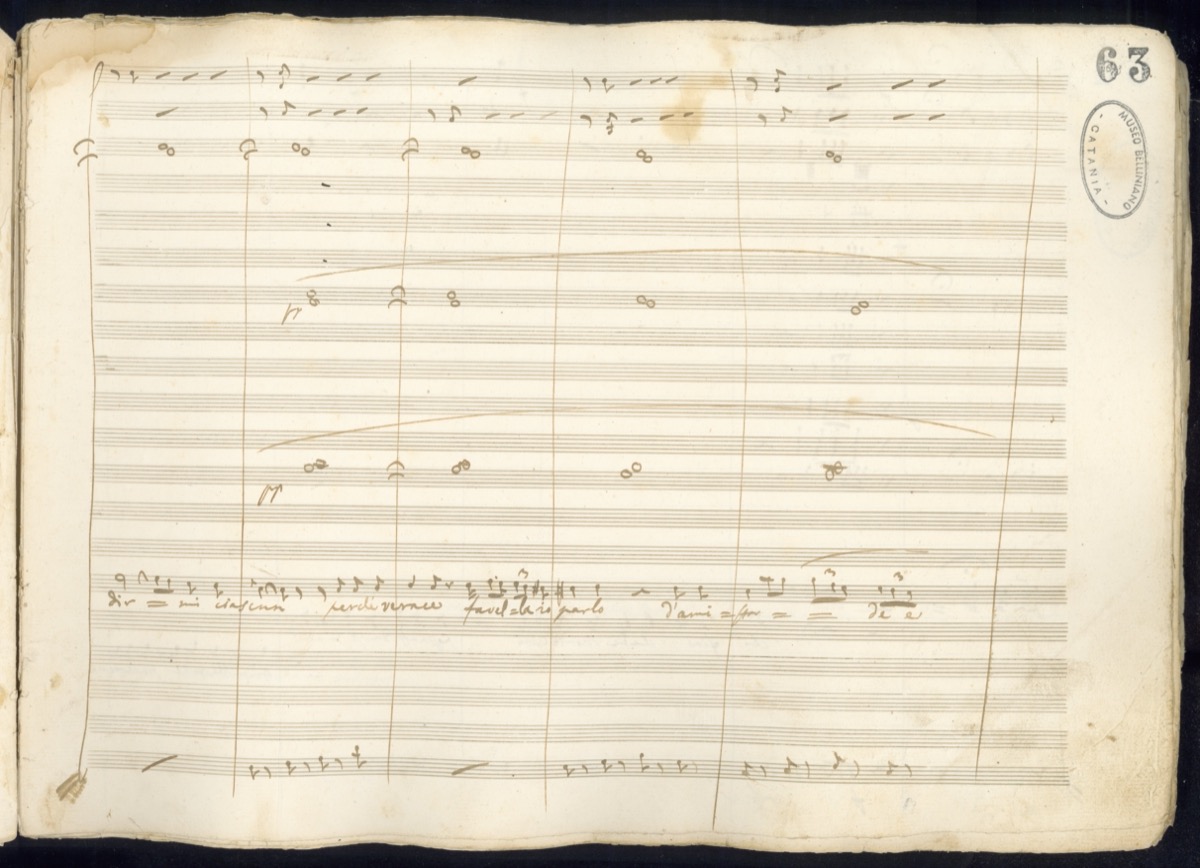 63
MUSEO BELLINIANO
- CATANIA -
pp
pp
3 3 3
dir = mi ciascun perché verace favel = le io parlo d'ami = = = de e